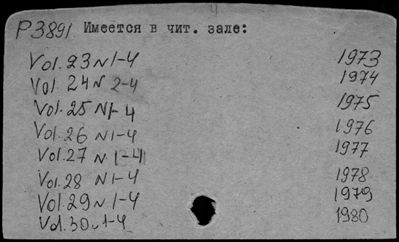 P3891 Имеется в чит. зале:
Vol. 23 N 1-4 1973
Vol. 24 N 2-4 1974
Vol. 25 N 1-4 1975
Vol. 26 N 1-4 1976
Vol. 27 N 1-4 1977
Vol. 28 N 1-4 1978
Vol. 29 N 1-4 1979
Vol. 30 N 1-4 1980